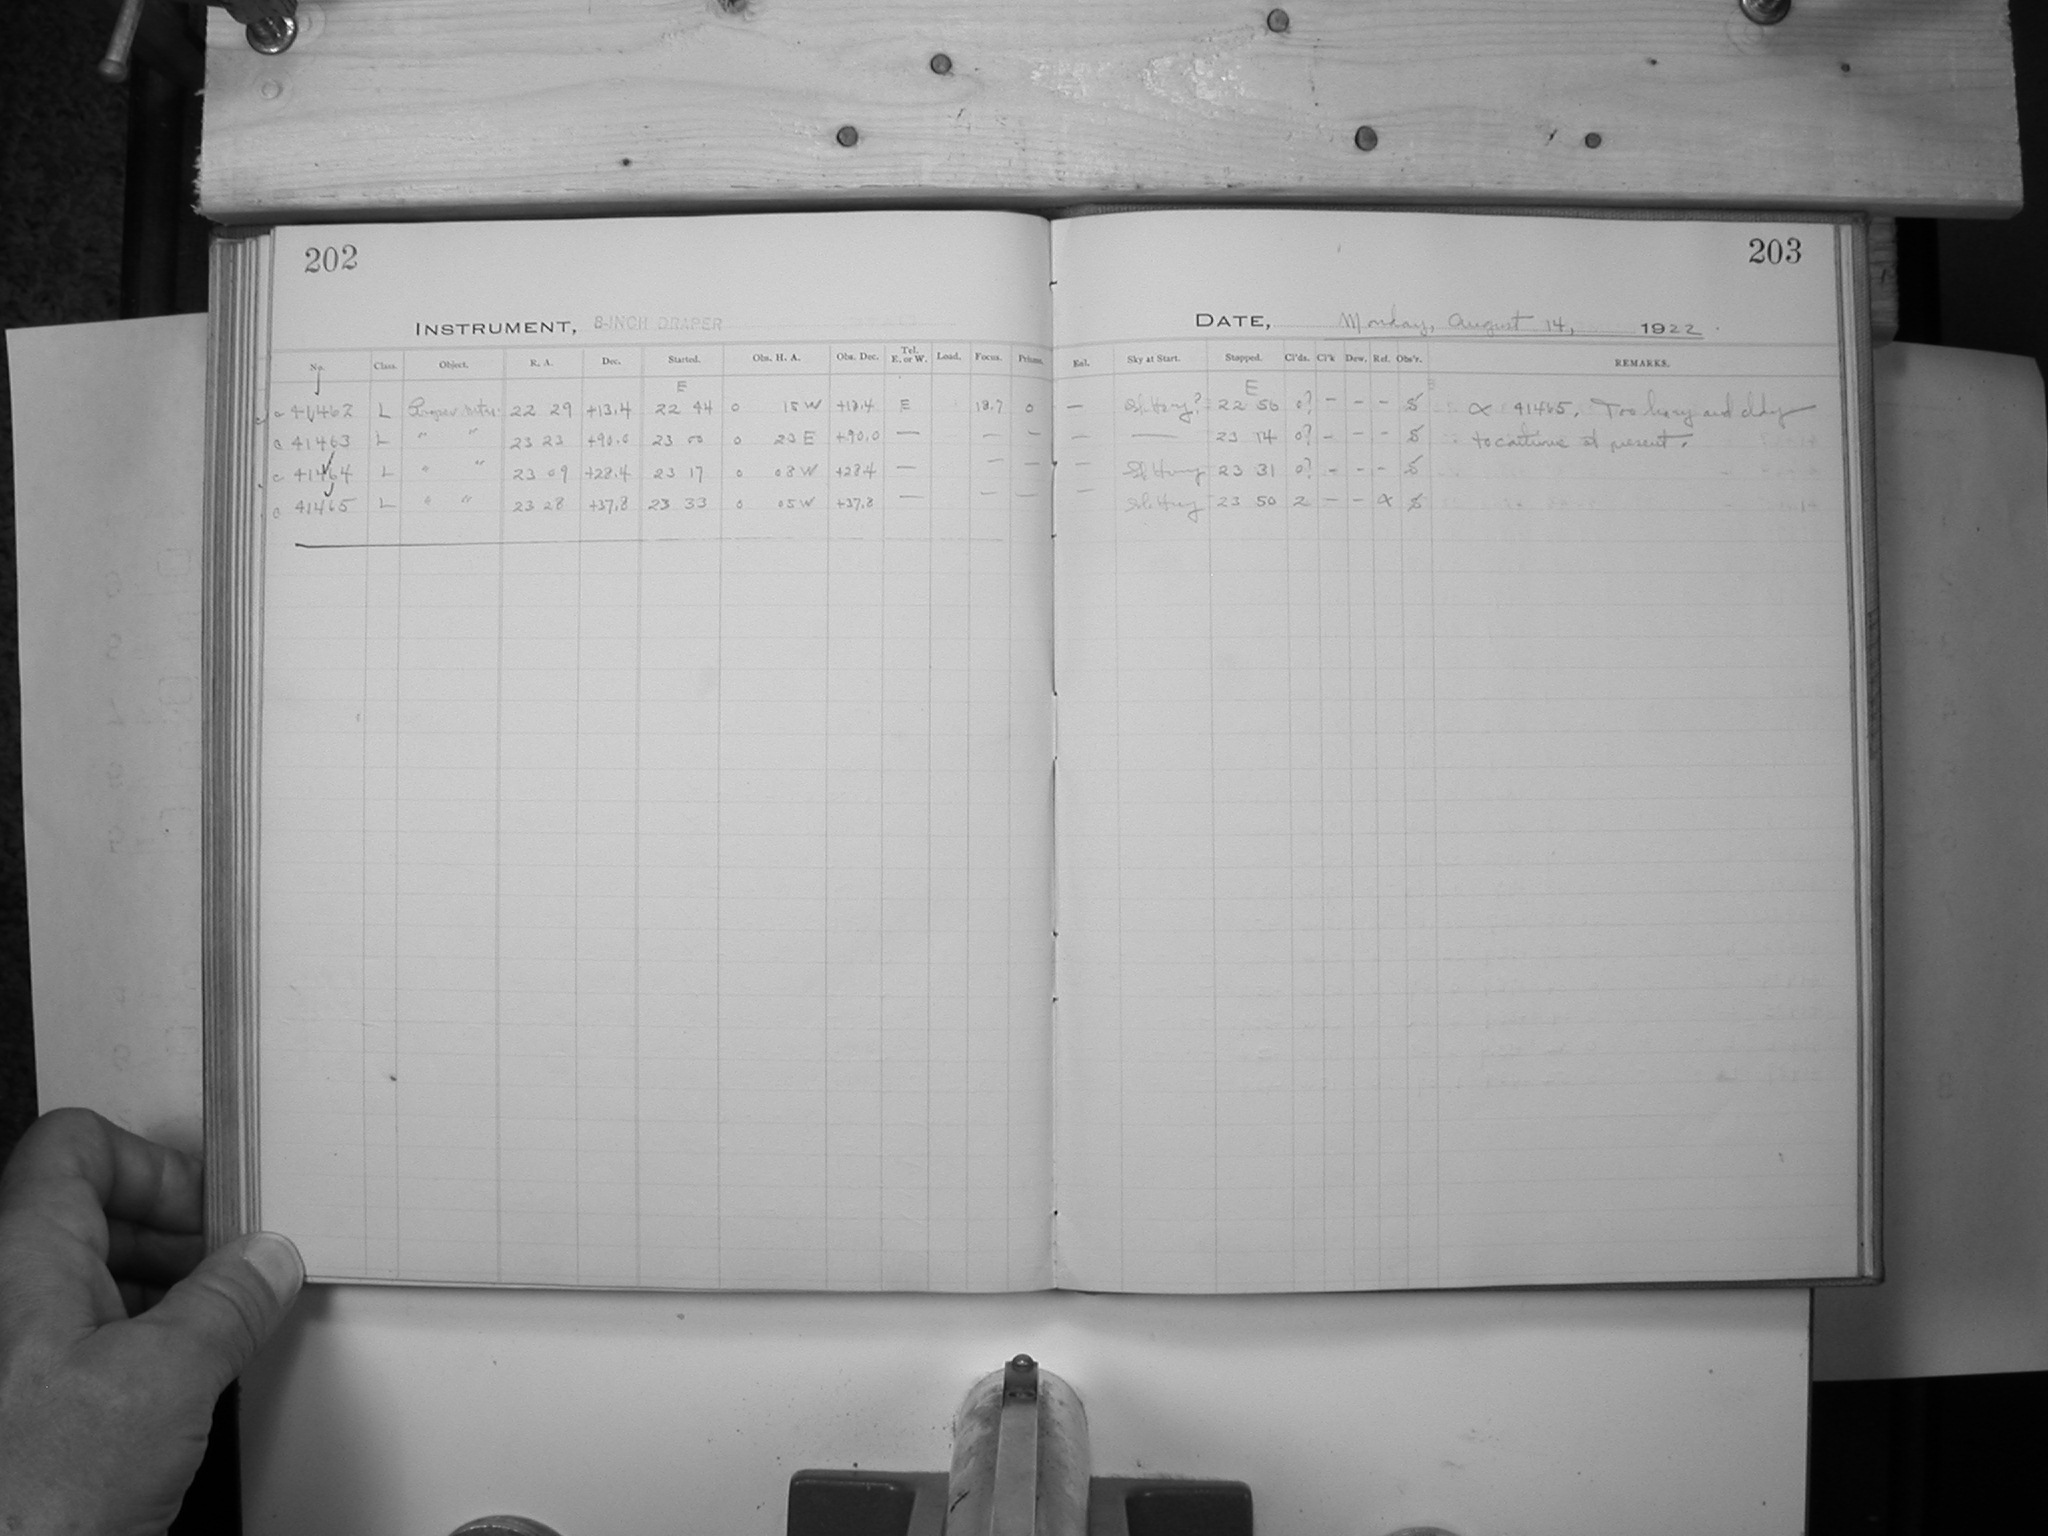 202
203
INSTRUMENT, 8-INCH DRAPER
DATE, Monday, August 14, 1922
No. Class. Object. R. A. Dec. Started. Obs. H. A. Obs. Dec. Tel. E. or W. Load. Focus. Prisms. Eal. Sky at Start. Stopped. Cl'ds. Cl'k Dew. Ref. Obs'r. REMARKS.
E E
c 41462 L 22 29 +13.4 22 44 0 15 W +13.4 E 18.7 0 — Sl. Hazy? 22 56 0? - - - S ∝ 41465. Too hazy and cldy
c 41463 L " " 23 23 +90.0 23 00 0 23 E +90.0 — — — — — 23 14 0? - - - S to continue at present.
c 41464 L " " 23 09 +28.4 23 17 0 08 W +28.4 — — — — Sl. Hazy 23 31 0? - - - S
c 41465 L " " 23 28 +37.8 23 33 0 05 W +37.8 — — — — Sl. Hazy 23 50 2 - - ∝ S